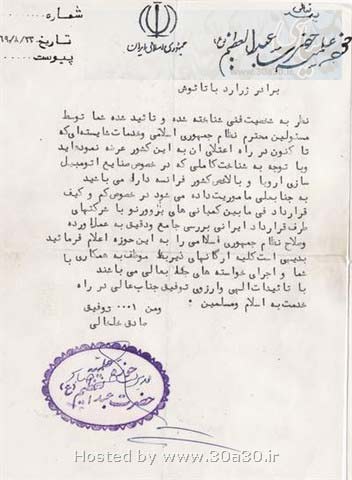 بسمه تعالی
شماره :
جمهوری اسلامی ایران
حوزه علمیه حضرت عبدالعظیم (ع)
تاریخ : ۶۹/۸/۲۳
پیوست
www.30a30.ir
برادر ژرارد باتانوش
نظر به شخصیت فنی شناخته شده و تائید شده شما توسط
مسئولین محترم نظام جمهوری اسلامی وخدمات شایسته ای که
تا کنون در راه اعتلای آن به این کشور عرضه نموده اید
وبا توجه به شناخت کاملی که در خصوص صنایع اتومبیل
سازی اروپا و بالاخص کشور فرانسه دارا می باشید
به جنابعالی ماموریت داده می شود در خصوص کم و کیف
قرارداد فی مابین کمپانی های پژو رنو با شرکتهای
طرف قرارداد ایرانی بررسی جامع ودقیق به عمل آورده
وصلاح نظام جمهوری اسلامی را به این حوزه اعلام فرمائید
بدیهی است کلیه ارگانهای ذیربط موظف به همکاری با
شما و اجرای خواسته های جنابعالی می باشند
با تائیدات الهی وارزوی توفیق جناب عالی در راه
خدمت به اسلام ومسلمین .
ومن ا... توفیق
صادق خلخالی
حوزه علمیه
حضرت عبدالعظیم (ع)
Hosted by www.30a30.ir